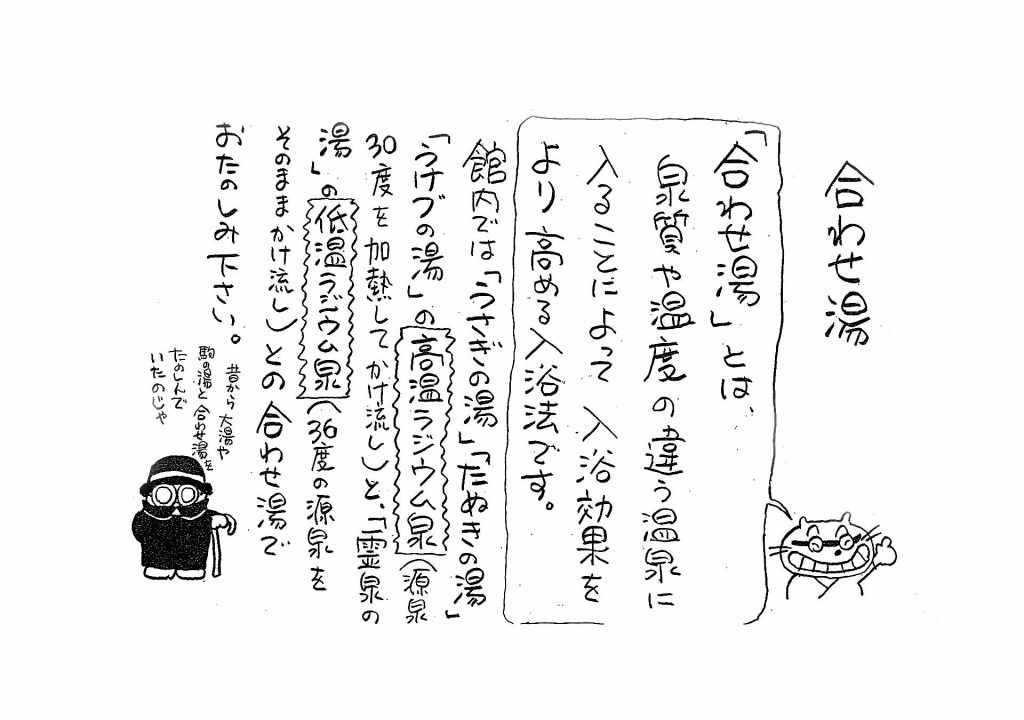 合わせ湯
「合わせ湯」とは、
泉質や温度の違う温泉に
入ることによって 入浴効果を
より高める入浴法です。
館内では「うさぎの湯」「たぬきの湯」
「うけづの湯」の高温ラジウム泉(源泉
30度を加熱してかけ流し)と、「霊泉の
湯」の低温ラジウム泉(36度の源泉を
そのままかけ流し)との合わせ湯で
おたのしみ下さい。
昔から 大湯や
駒の湯と 合わせ湯を
たのしんで
いたのじゃ